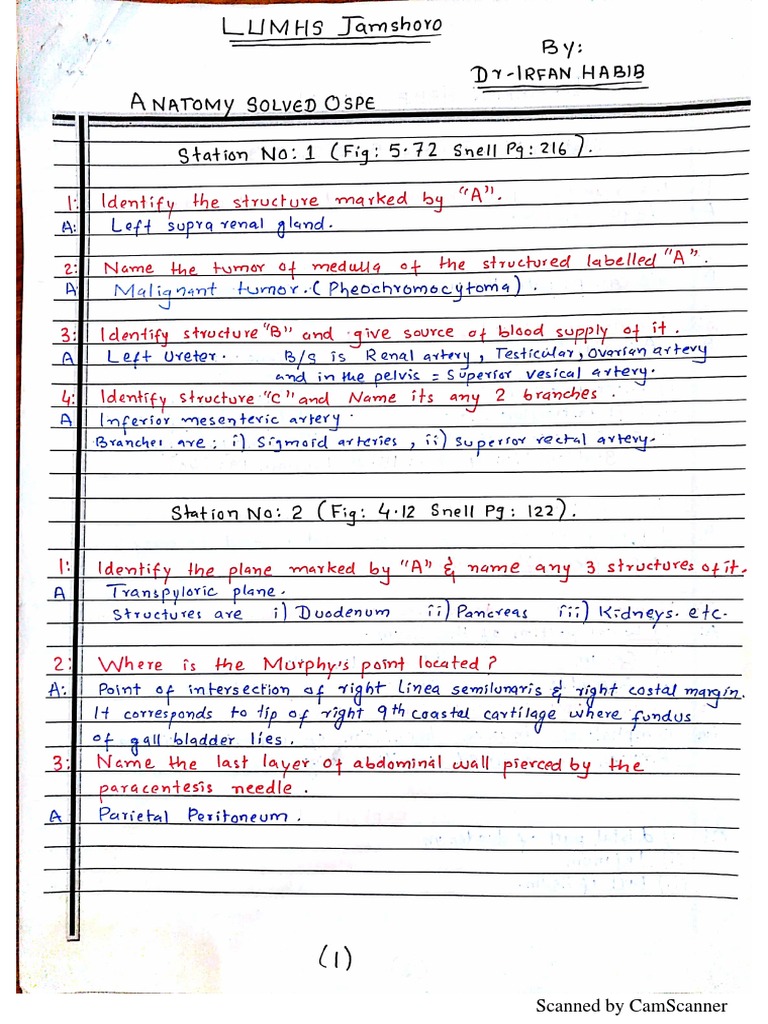 LUMHS Jamshoro
By:
Dr-IRFAN HABIB
ANATOMY SOLVED OSPE
Station No: 1 (Fig: 5.72 Snell Pg: 216).
1: Identify the structure marked by "A".
A: Left supra renal gland.
2: Name the tumor of medulla of the structured labelled "A".
A Malignant tumor. (Pheochromocytoma).
3: Identify structure "B" and give source of blood supply of it.
A Left Ureter. B/s is Renal artery, Testicular, Ovarian artery
and in the pelvis = Superior vesical artery.
4: Identify structure "C" and Name its any 2 branches.
A Inferior mesenteric artery.
Branches are: i) Sigmoid arteries, ii) Superior rectal artery.
Station No: 2 (Fig: 4.12 Snell Pg: 122).
1: Identify the plane marked by "A" & name any 3 structures of it.
A Transpyloric plane.
Structures are i) Duodenum ii) Pancreas iii) Kidneys. etc.
2: Where is the Murphy's point located?
A: Point of intersection of right Linea semilunaris & right costal margin.
It corresponds to tip of right 9th coastal cartilage where fundus
of gall bladder lies.
3: Name the last layer of abdominal wall pierced by the
paracentesis needle.
A Parietal Peritoneum.
(1)
Scanned by CamScanner